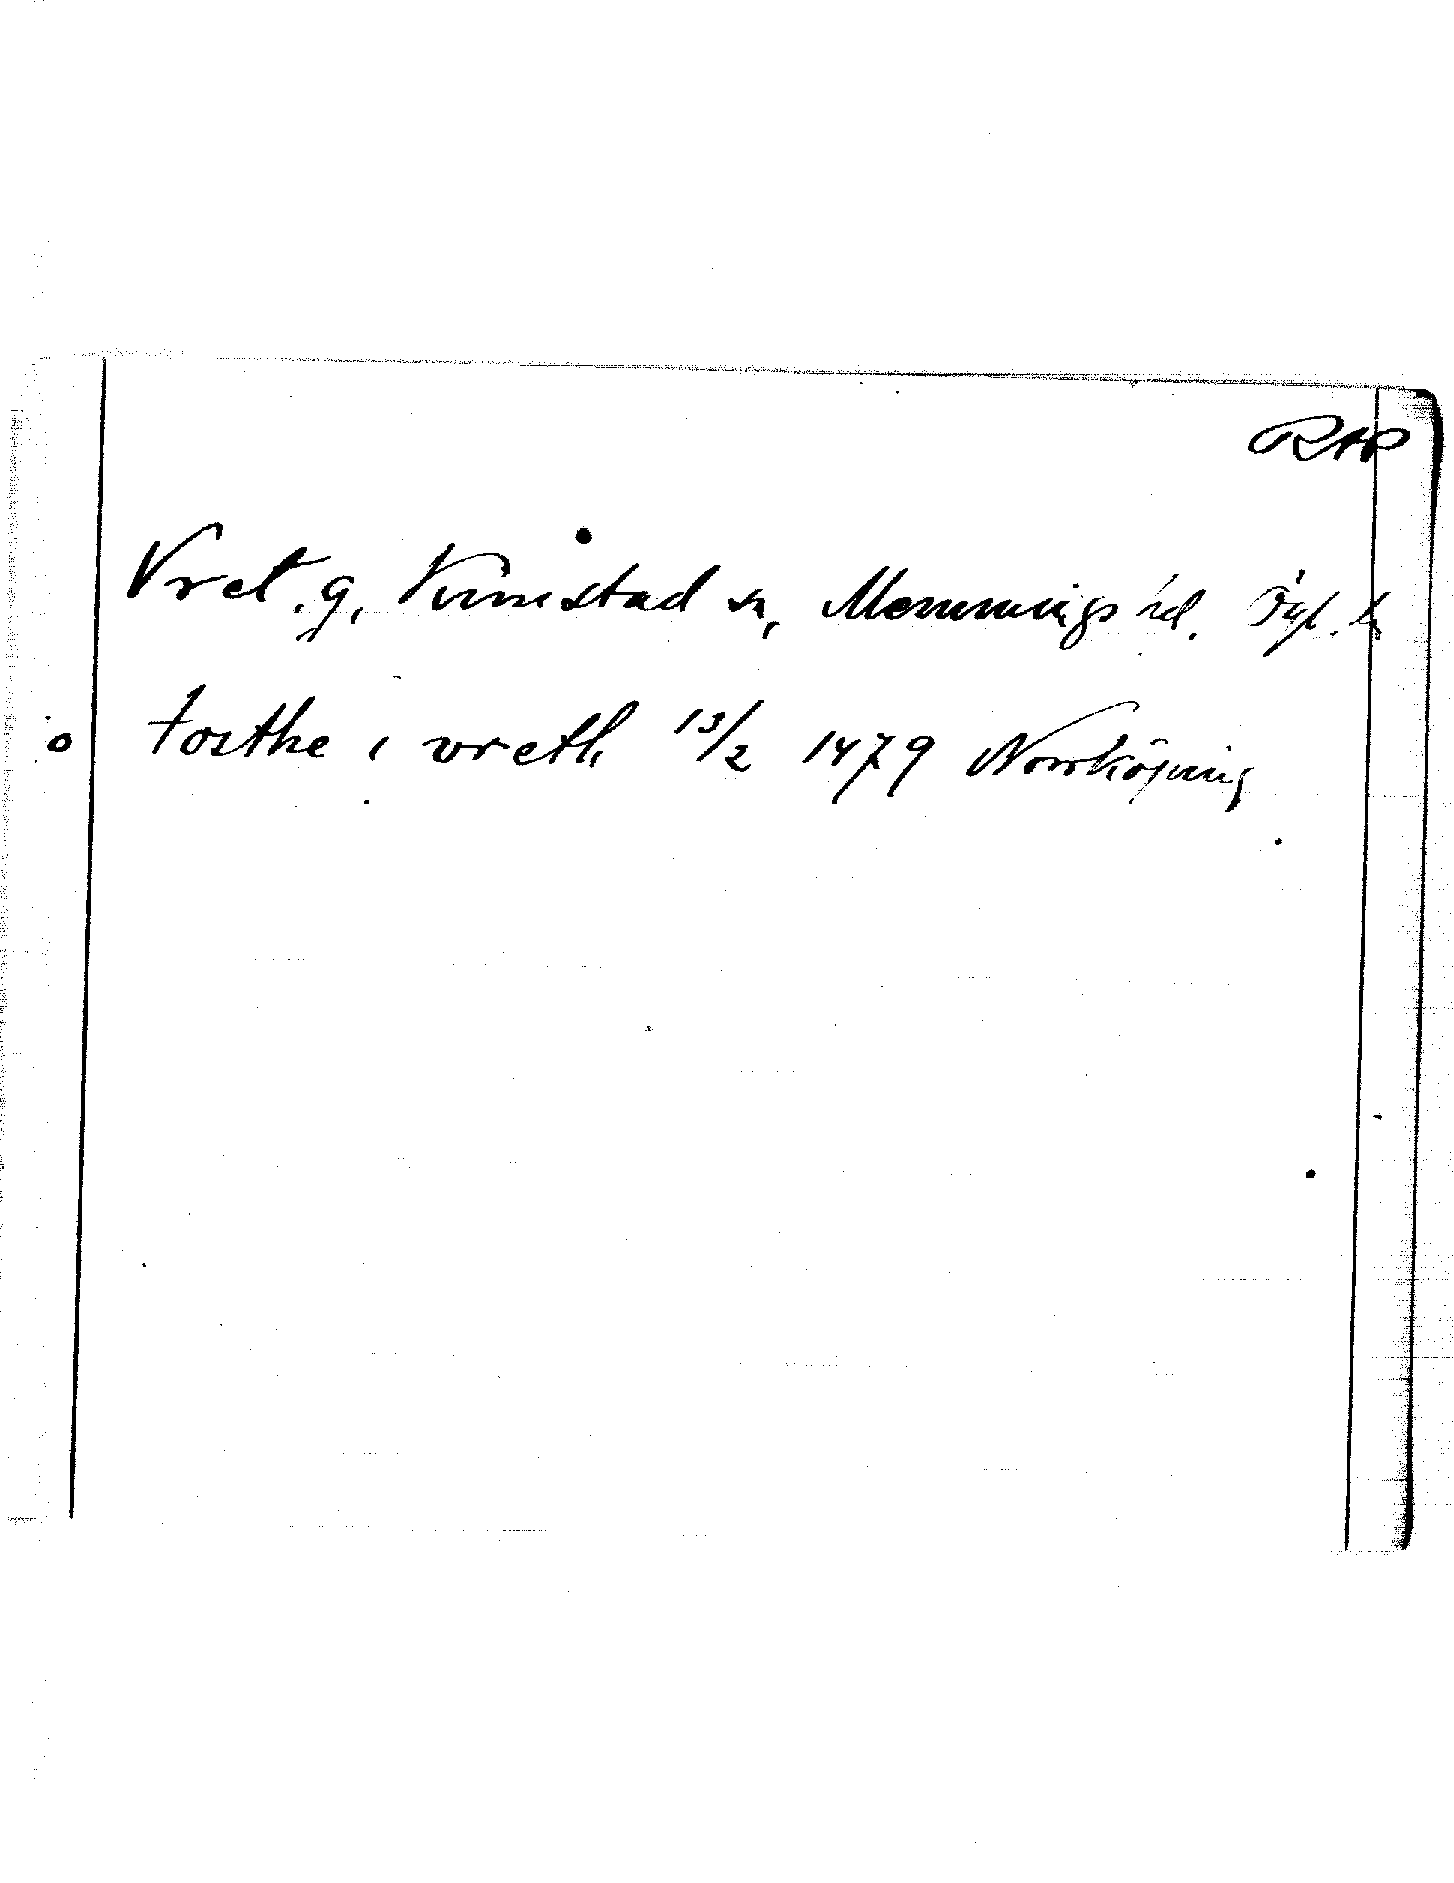 RAP
Vret. g. Kimstad sn, Memmings hd. Ögl. ln
o Tosthe i vreth 13/2 1479 Norrköping